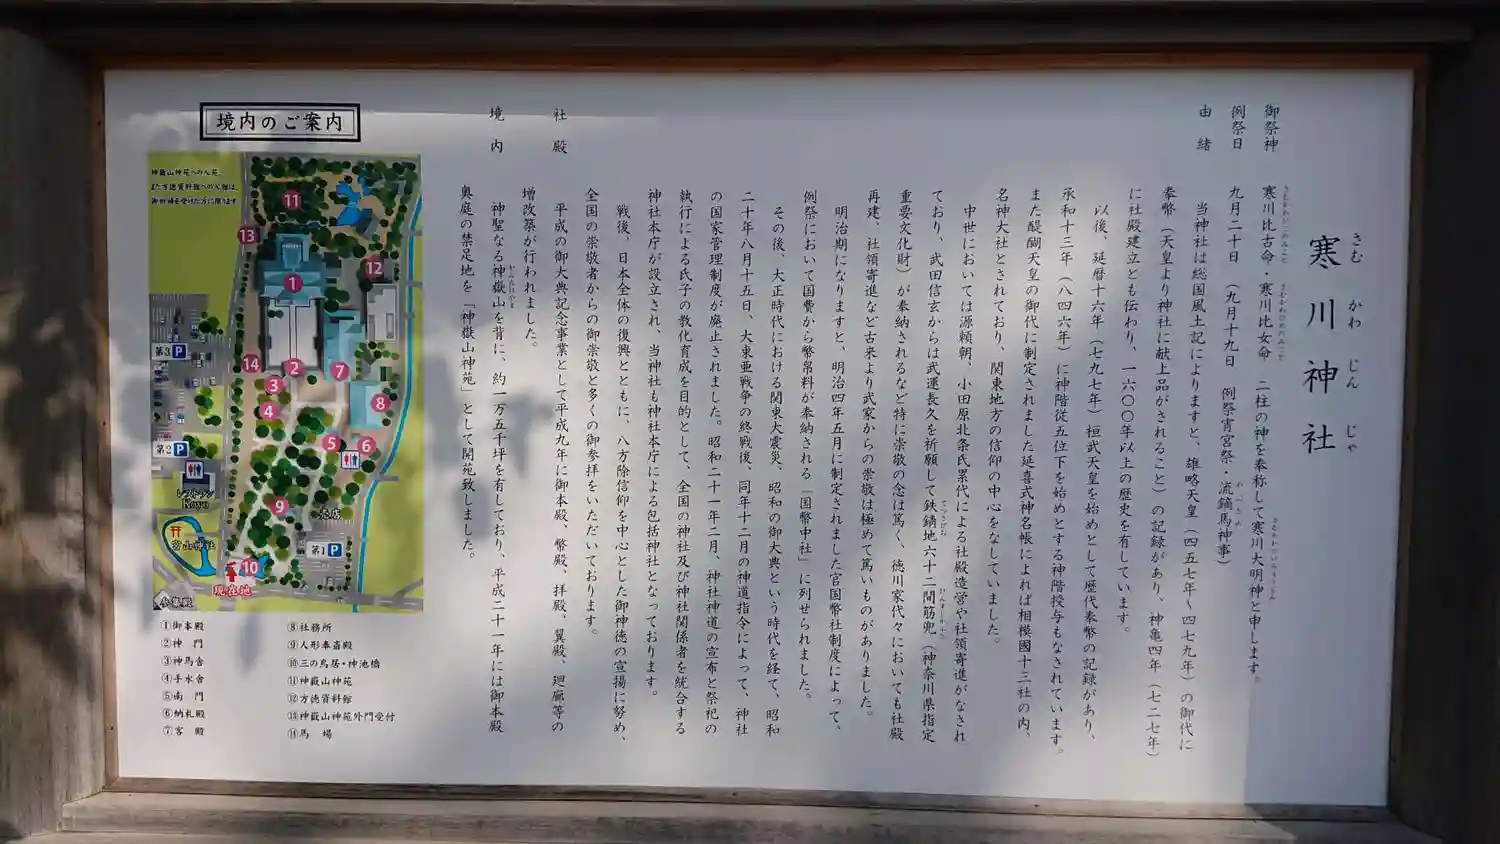 寒川神社
さむかわじんじゃ
御祭神 寒川比古命・寒川比女命 二柱の神を奉称して寒川大明神と申します。
例祭日 九月二十日 (九月十九日 例祭宵宮祭・流鏑馬神事)
由緒 当神社は総国風土記によりますと、雄略天皇(四五七年〜四七九年)の御代に
奉幣(天皇より神社に献上品がされること)の記録があり、神亀四年(七二七年)
に社殿建立とも伝わり、一六〇〇年以上の歴史を有しています。
以後、延暦十六年(七九七年)桓武天皇を始めとして歴代奉幣の記録があり、
承和十三年(八四六年)に神階従五位下を始めとする神階授与もなされています。
また醍醐天皇の御代に制定されました延喜式神名帳によれば相模國十三社の内、
名神大社とされており、関東地方の信仰の中心をなしていました。
中世においては源頼朝、小田原北条氏累代による社殿造営や社領寄進がなされ
ており、武田信玄からは武運長久を祈願して鉄錆地六十二間筋兜(神奈川県指定
重要文化財)が奉納されるなど特に崇敬の念は篤く、徳川家代々においても社殿
再建、社領寄進など古来より武家からの崇敬は極めて篤いものがありました。
明治期になりますと、明治四年五月に制定されました官国幣社制度によって、
例祭において国費から幣帛料が奉納される「国幣中社」に列せられました。
その後、大正時代における関東大震災、昭和の御大典という時代を経て、昭和
二十年八月十五日、大東亜戦争の終戦後、同年十二月の神道指令によって、神社
の国家管理制度が廃止されました。昭和二十一年二月、神社神道の宣布と祭祀の
執行による氏子の教化育成を目的として、全国の神社及び神社関係者を統合する
神社本庁が設立され、当神社も神社本庁による包括神社となっております。
戦後、日本全体の復興とともに、八方除信仰を中心とした御神徳の宣揚に努め、
全国の崇敬者からの御崇敬と多くの御参拝をいただいております。
社殿 平成の御大典記念事業として平成九年に御本殿、幣殿、拝殿、翼殿、廻廊等の
増改築が行われました。
境内 神聖なる神嶽山を背に、約一万五千坪を有しており、平成二十一年には御本殿
奥庭の禁足地を「神嶽山神苑」として開苑致しました。
境内のご案内
神嶽山神苑への入苑、
また方徳資料館への入館は、
御祈祷を受けた方に限ります
11
13
12
1
第3 P
14
2
7
3
4
8
5
6
第2 P
レストラン
Kayo
9
売店
宮山神社
第1 P
10
現在地
参集殿
①御本殿
②神門
③神馬舎
④手水舎
⑤南門
⑥納札殿
⑦客殿
⑧社務所
⑨人形奉斎殿
⑩三の鳥居・神池橋
⑪神嶽山神苑
⑫方徳資料館
⑬神嶽山神苑外門受付
⑭馬場